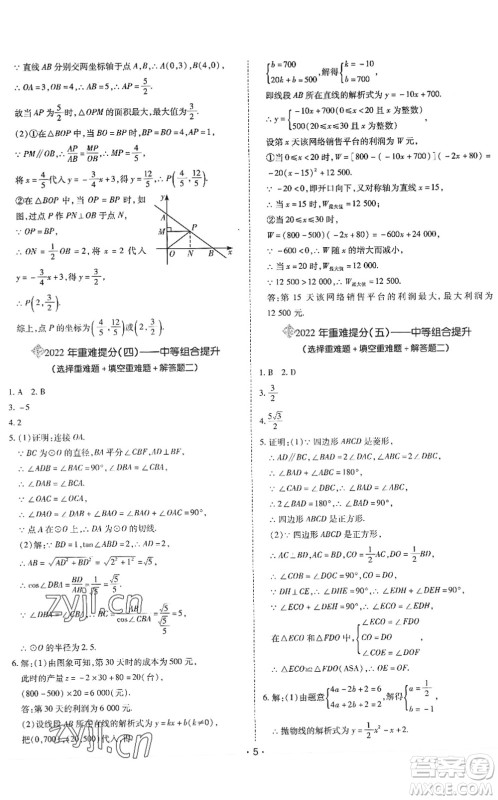 ∵ 直线 AB 分别交两坐标轴于点 A,B,∴ A(0,3),B(4,0).
∴ OA=3,OB=4.∴ AB=5.∴ AP=5/2.
故当 AP=5/2 时,△OPM 的面积最大,最大值为 3/2.
(2)①在△BOP 中,当∠BOP=90°时,如图,
∵ PM∥OB,∴ AP/AB=MP/OB.∴ MP=4/5.
将 x=4/5 代入 y=-3/4x+3,得 y=12/5.∴ P(4/5,12/5).
②在△BOP 中,当 OP=BP 时,如图,过点 P 作 PN⊥OB 于点 N.
∵ OP=BP,
∴ ON=1/2OB=2.
将 x=2 代入 y=-3/4x+3,得 y=3/2.
∴ P(2,3/2).
综上,点 P 的坐标为(4/5,12/5)或(2,3/2).
2022 年重难提分(四)——中等组合提升
(选择重难题+填空重难题+解答题二)
1. A 2. B
3. -5
4. 2
5. (1)证明:连接 OA.
∵ BC 为⊙O 的直径,BA 平分∠CBF,AD⊥BF,
∴ ∠ADB=∠BAC=90°,∠DBA=∠CBA.
∵ ∠OAC=∠OCA,
∴ ∠DAO=∠DAB+∠BAO=∠BAO+∠OAC=90°.
∵ 点 A 在⊙O 上,
∴ DA 为⊙O 的切线.
(2)解:∵ BD=1,tan∠ABD=2,∴ AD=2.
∴ AB=√(AD²+BD²)=√(2²+1²)=√5.
∴ cos∠DBA=BD/AB=1/√5=√5/5.
∵ ∠DBA=∠CBA,∴ BC=AB/cos∠CBA=√5/(√5/5)=5.
∴ ⊙O 的半径为 2.5.
6. 解:(1)由图象可知,第 30 天时的成本为 500 元,
此时的产量 z=-2×30+80=20.
(800-500)×20=6 000(元).
答:第 30 天的利润为 6 000 元.
(2)设线段 AB 所在直线的解析式为 y=kx+b(k≠0),
把(0,700),(20,500)代入,得
{b=700, 20k+b=500. 解得{k=-10, b=700.
即线段 AB 所在直线的解析式为 y=-10x+700.
∴ y={-10x+700(0≤x<20 且 x 为整数), 500(20≤x≤30 且 x 为整数).
设第 x 天该网络销售平台的利润为 W 元,
①当 0≤x<20 时,W=[800-(-10x+700)](-2x+80)=-20(x-15)²+12 500.
∴ 当 x=15 时,W最大值=12 500.
②当 20≤x≤30 时,
W=(800-500)(-2x+80)=-600x+24 000.
∵ -600<0,∴ W 随 x 的增大而减小.
∴ 当 x=20 时,W最大值=12 000.
12 500>12 000.
答:第 15 天该网络销售平台的利润最大,最大利润是 12 500 元.
2022 年重难提分(五)——中等组合提升
(选择重难题+填空重难题+解答题二)
1. B 2. D
3. 3/2
4. 5√3/3
5. 证明:(1)∵ 四边形 ABCD 是菱形,
∴ AD∥BC.
∴ ∠DAB+∠ABC=180°.
∵ ∠DAB=∠ABC,
∴ 2∠ABC=180°.
∴ ∠ABC=90°.
∴ 四边形 ABCD 是正方形.
(2)∵ 四边形 ABCD 是正方形,
∴ AC⊥BD,AC=BD,CO=1/2AC,DO=1/2BD.
∵ DH⊥CE,DO⊥AC,
∴ ∠ECO+∠DEH=90°,∠FDO+∠DEH=90°.
∴ ∠ECO=∠FDO.
在△ECO 和△FDO 中,{∠ECO=∠FDO, CO=DO, ∠COE=∠DOF,
∴ △ECO≌△FDO(ASA).∴ OE=OF.
6. 解:(1)由题意{4a-2b+2=0, 4a+2b+2=6. 解得{a=1/4, b=3/2.
∴ 抛物线的解析式为 y=1/4x²+3/2x+2.
· 5 ·
zyjl.cn
zyjl.cn
答案圈
MXQE.COM